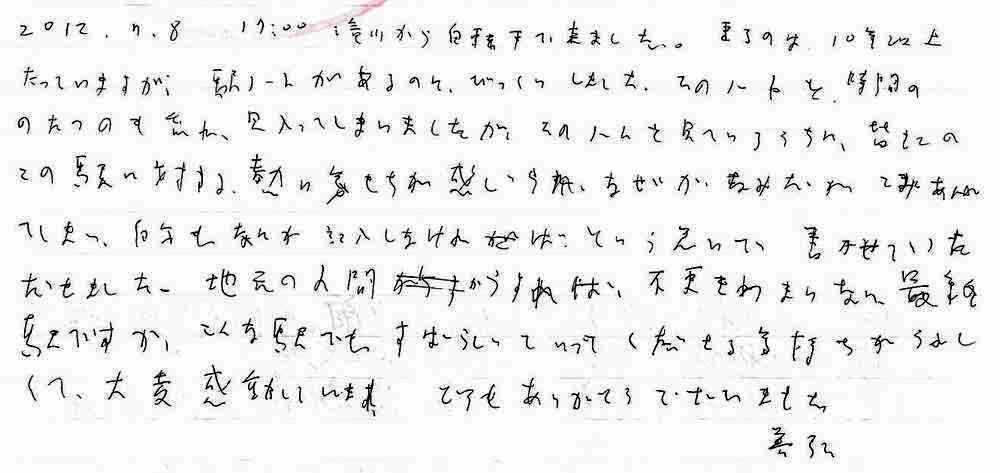 2012.7.8 17:00 滝川から自転車で来ました。来るのは、10年以上
たっていますが、駅ノートがあるのに、びっくりしました。そのノートを、時間の
のたつのも忘れ、見入ってしまいましたが、そのノートを見ているうちに、皆さんの
この駅に対する、熱い気もちが感じられ、なぜか、なみだが こみあげ
てしまい、自分もなにか記入しなければ という思いで 書かせていた
だきました。地元の人間からすれば、不便きわまりない 最終
駅ですが、こんな駅でも すばらしいといってくださる気持ちがうれし
くて、大変感動しています。とてもありがとうございました